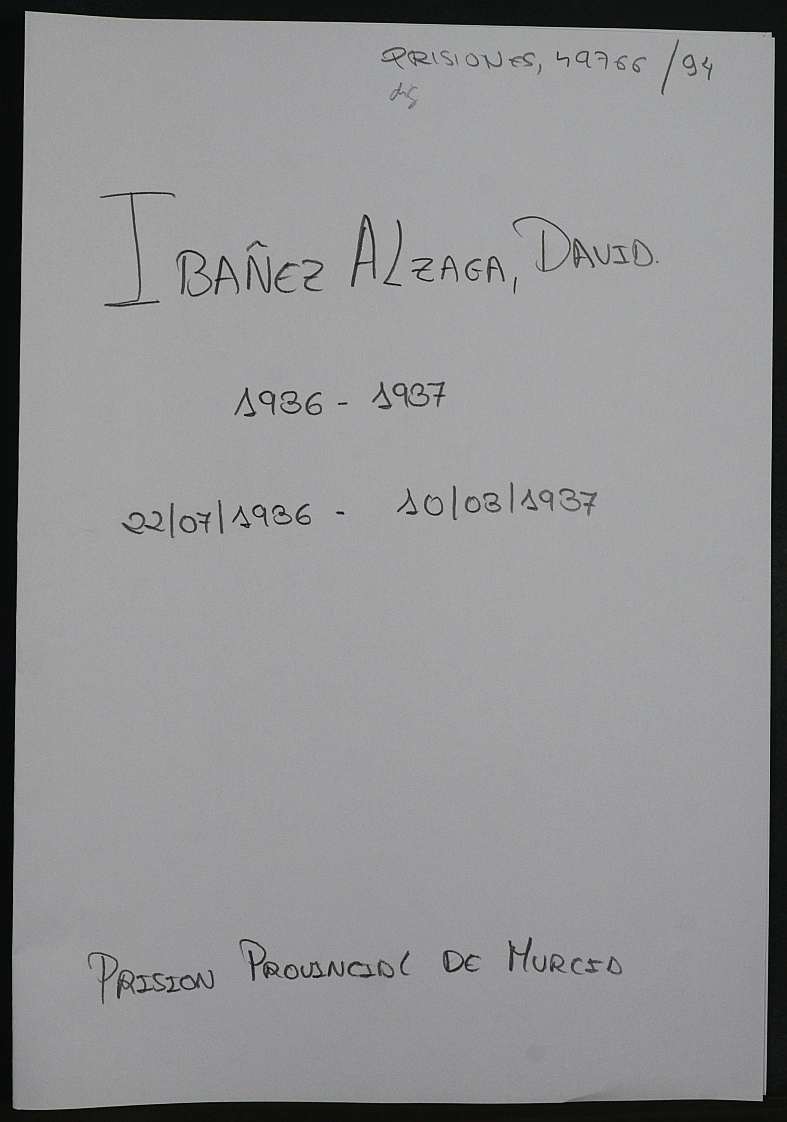 PRISIONES, 49766/94
dig
IBAÑEZ ALZAGA, DAVID.
1936 - 1937
22/07/1936 - 10/03/1937
PRISION PROVINCIAL DE MURCIA